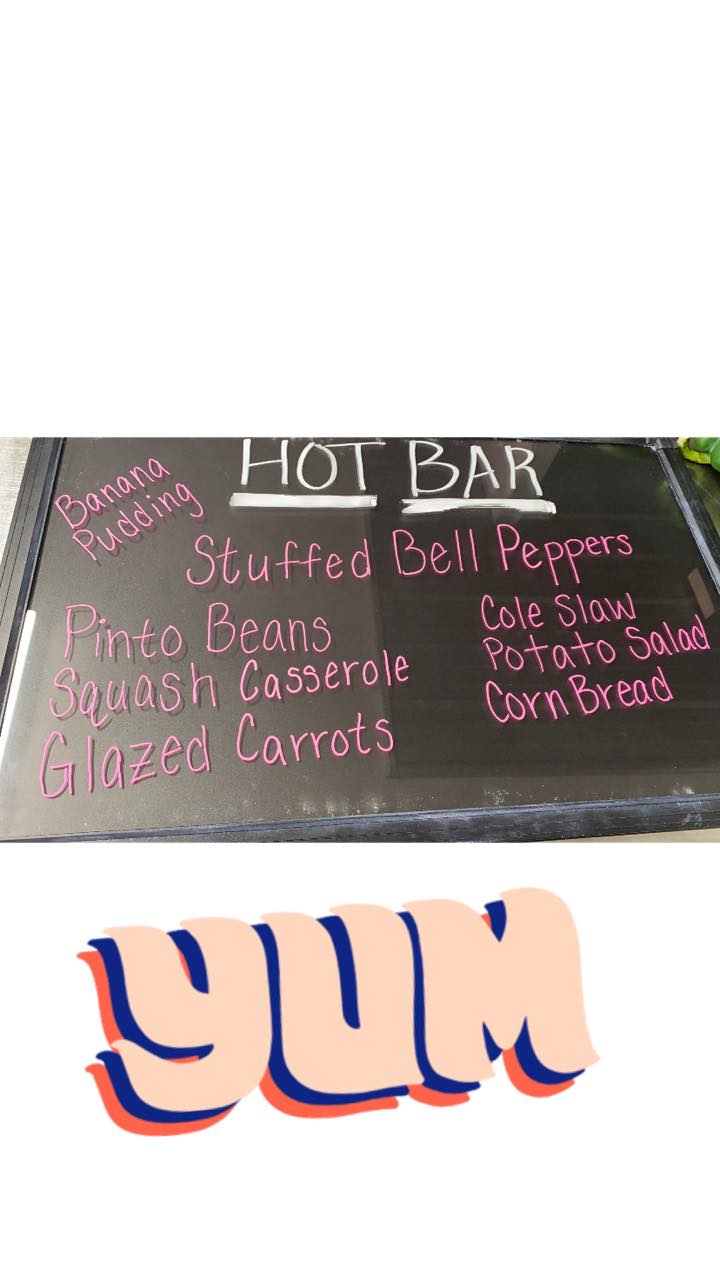 HOT BAR
Banana
Pudding
Stuffed Bell Peppers
Pinto Beans
Squash Casserole
Glazed Carrots
Cole Slaw
Potato Salad
Corn Bread
YUM